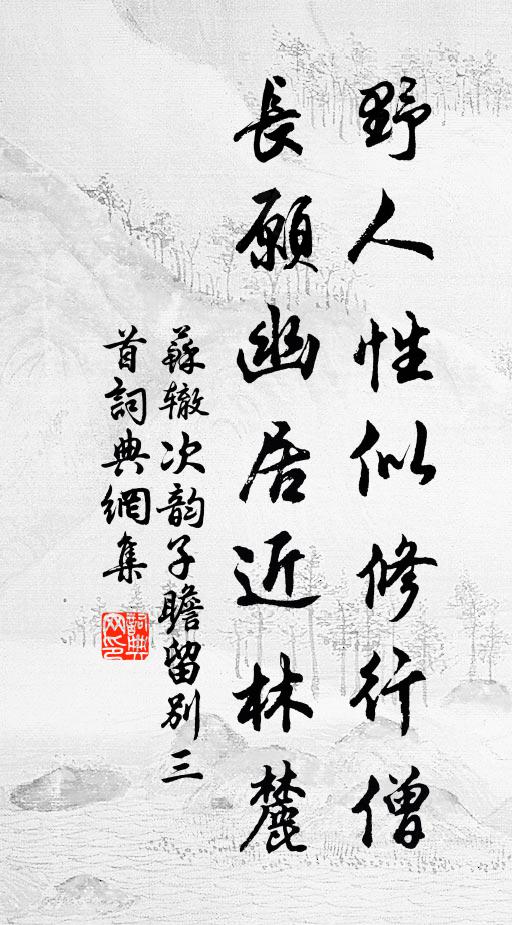 野人性似修行僧
長願幽居近林麓
蘇辙次韵子瞻留别三
首詞典網集
詞典网印